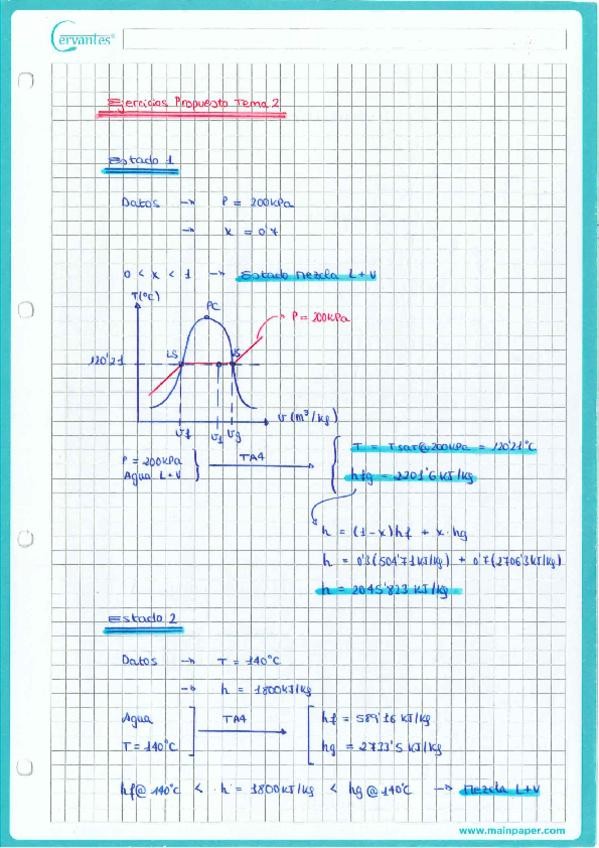 Cervantes®
Ejercicios Propuesto Tema 2
Estado 1
Datos → P = 200kPa
→ x = 0'7
0 < x < 1 → Estado Mezcla L+V
T(°C)
PC
→ P = 200kPa
LS
120'21
v (m³/kg)
vf v1 vg
P = 200kPa
Agua L+V
TA4
T = Tsat@200kPa = 120'21°C
hfg = 2201'6 KJ/kg
h = (1-x)hf + x·hg
h = 0'3(504'71kJ/kg) + 0'7(2706'3kJ/kg)
h = 2045'823 KJ/kg
Estado 2
Datos → T = 140°C
→ h = 1800KJ/kg
Agua
T = 140°C
TA4
hf = 589'16 KJ/kg
hg = 2733'5 KJ/kg
hf@140°C < h = 1800KJ/kg < hg@140°C → Mezcla L+V
www.mainpaper.com